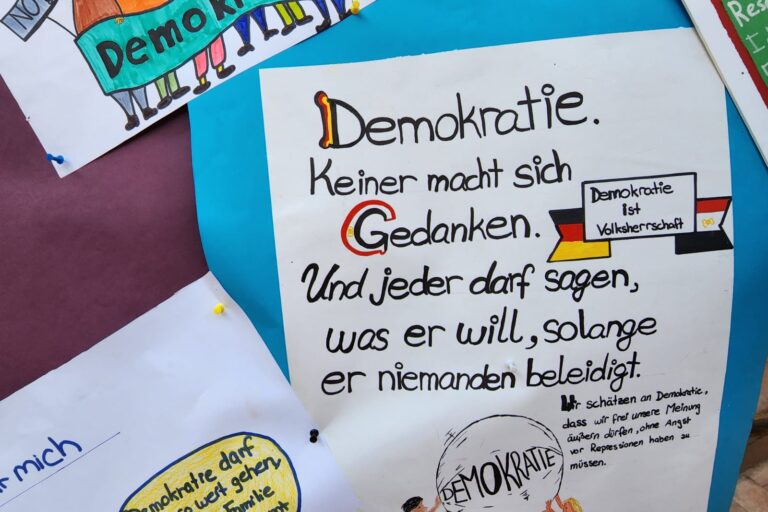 NO
Demok
Demokratie.
Keiner macht sich
Gedanken.
Und jeder darf sagen,
was er will, solange
er niemanden beleidigt.
Demokratie
ist
Volksherrschaft
Wir schätzen an Demokratie,
dass wir frei unsere Meinung
äußern dürfen, ohne Angst
vor Repressionen haben zu
müssen.
DEMOKRATIE
r mich
Demokratie darf
so weit gehen,
Familie
Res